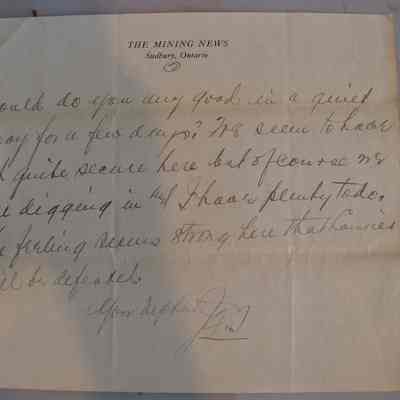 THE MINING NEWS
Sudbury, Ontario
ould do you any good in a quiet
way for a few days? We seem to have
quite secure here but of course we
digging in & I have plenty to do.
feeling seems strong here that
be defended.
Your nephew
Jim